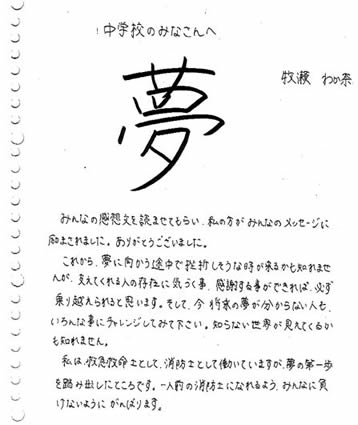 中学校のみなさんへ
牧瀬 わか奈
夢
みんなの感想文を読ませてもらい、私の方がみんなのメッセージに
励まされました。ありがとうございました。
これから、夢に向かう途中で挫折しそうな時が来るかも知れませ
んが、支えてくれる人の存在に気づく事、感謝する事ができれば、必ず
乗り越えられると思います。そして、今 将来の夢が分からない人も、
いろんな事にチャレンジしてみて下さい。知らない世界が見えてくるか
も知れません。
私は、救急救命士として、消防士として働いていますが、夢の第一歩
を踏み出したところです。一人前の消防士になれるよう、みんなに負
けないように がんばります。